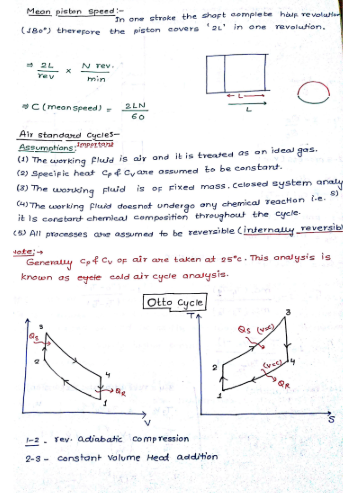 Mean piston speed:-
In one stroke the shaft complete half revolution
(180°) therefore the piston covers '2L' in one revolution.
⇒ 2L/rev × N rev./min
L
L
⇒ C (mean speed) = 2LN/60
Air standard Cycles-
Assumptions: Important
(1) The working fluid is air and it is treated as an ideal gas.
(2) Specific heat Cp & Cv are assumed to be constant.
(3) The working fluid is of fixed mass. (closed system analysis)
(4) The working fluid doesnot undergo any chemical reaction i.e.
it is constant chemical composition throughout the cycle.
(5) All processes are assumed to be reversible (internally reversibl
Note:→
Generally Cp & Cv of air are taken at 25°c. This analysis is
known as cycle cold air cycle analysis.
Otto Cycle
T
3
3
Qs
Qs (V=c)
2
4
2
(V=c)
4
QR
QR
1
1
V
S
1-2 - rev. adiabatic compression
2-3 - constant volume Head addition